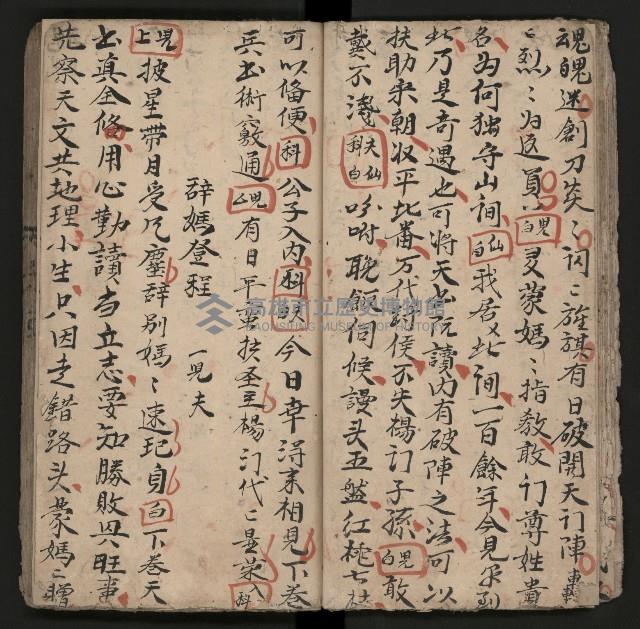 魂魄迷創刀炎〻閃〻旌旗有日破開天门陣轟
〻烈〻为送員兒白又蒙媽〻指教敢门尊姓貴
名为何独守山间仙白我居又此间一百餘年今見尔到
此乃是奇遇也可将天书玩讀内有破陣之法可以
扶助宋朝収平北番万代封侯不失楊门子孫兒白敢
戴不淺科夫仙白吩咐晚餐伺候謾头五盤红桃七枝
可以俻便科公子入内科今日幸淂来相見下卷
兵书術竅通兒有日平蛮扶圣主楊门代〻显荣入科
辞媽登程 一兒夫
兒上披星帶月受凡塵辞别媽〻速起身白下卷天
书真全俻用心勤讀当立志要知勝敗与旺事
先察天文共地理小生只因走錯路头蒙媽〻贈
高雄市立歷史博物館
KAOHSIUNG MUSEUM OF HISTORY